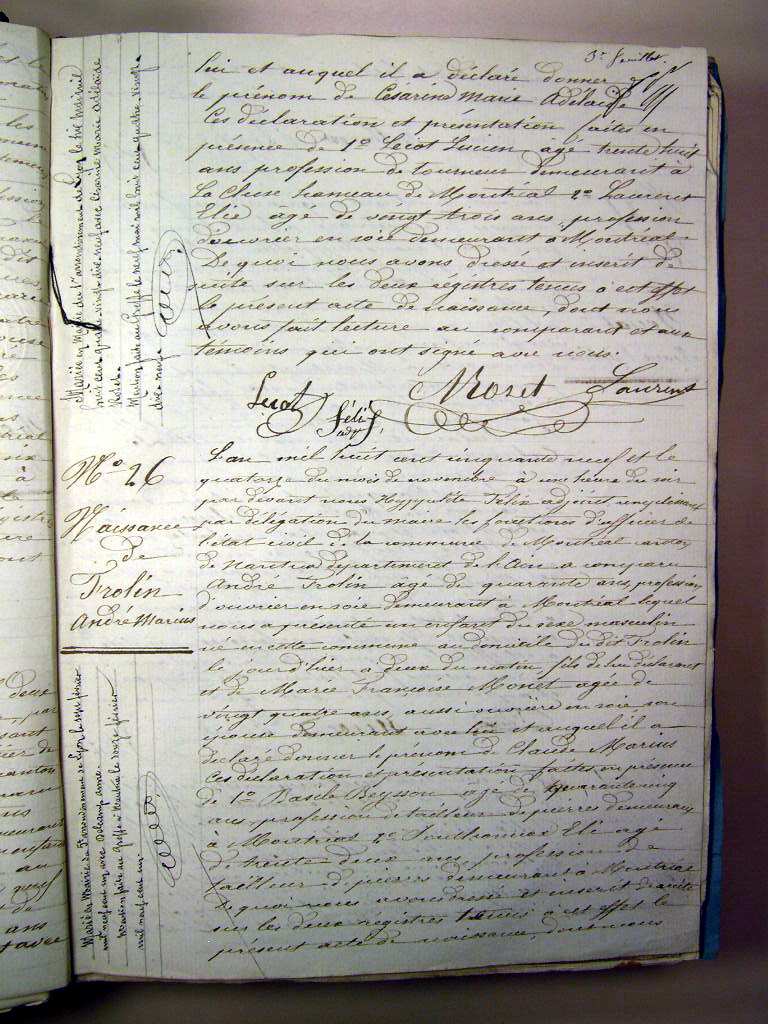 3e feuillet.
lui et auquel il a déclaré donner
le prénom de Césarine Marie Adélaïde
Ces déclaration et présentation faites en
présence de 1o Lecot Lucien agé trente huit
ans profession de tourneur demeurant à
La Cluse hameau de Montréal 2o Laurent
Elie âgé de vingt trois ans, profession
d'ouvrier en soie demeurant à Montréal.
De quoi nous avons dressé et inscrit de
suite sur les deux régistres tenus à cet effet
le présent acte de naissance, dont nous
avons fait lecture au comparant et aux
témoins qui ont signé avec nous.
Lecot
Félix
adjt
Moret
Laurent
Mariée en Mairie du arrondissement de Lyon le dix mai mil
huit cent quatre vingt dix neuf avec Césarine Marie Adélaïde
Mention faite au Greffe le neuf mai mil huit cent quatre vingt
dix neuf
No 26
Naissance
de
Frolin
André Marius
L'an mil huit cent cinquante neuf et le
quatorze du mois de novembre à une heure du soir
par devant nous Hyppolite Félix adjoint remplissant
par délégation du maire les fonctions d'officier de
l'état civil de la commune de Montréal canton
de Nantua département de l'Ain a comparu
André Frolin agé de quarante ans, profession
d'ouvrier en soie demeurant à Montréal lequel
nous a présenté un enfant du sexe masculin
né en cette commune au domicile du dit Frolin
le jour d'hier à deux du matin, fils de lui déclarant
et de Marie Françoise Monet agée de
vingt quatre ans, aussi ouvrière en soie son
épouse demeurant avec lui et auquel il a
déclaré donner le prénom de Claude Marius
Ces déclaration et présentation faites en présence
de 1o Basile Beysson agé de quarante cinq
ans profession de tailleur de pierres demeurant
à Montréal 2o Elie agé
de trente deux ans, profession de
tailleur de pierres demeurant à Montréal
De quoi nous avons dressé et inscrit de suite
sur les deux registres tenus à cet effet le
présent acte de naissance, dont nous
Marié en Mairie du arrondissement de Lyon le sept février
mil neuf cent un avec
Mention faite au Greffe à Nantua le douze février
mil neuf cent un.